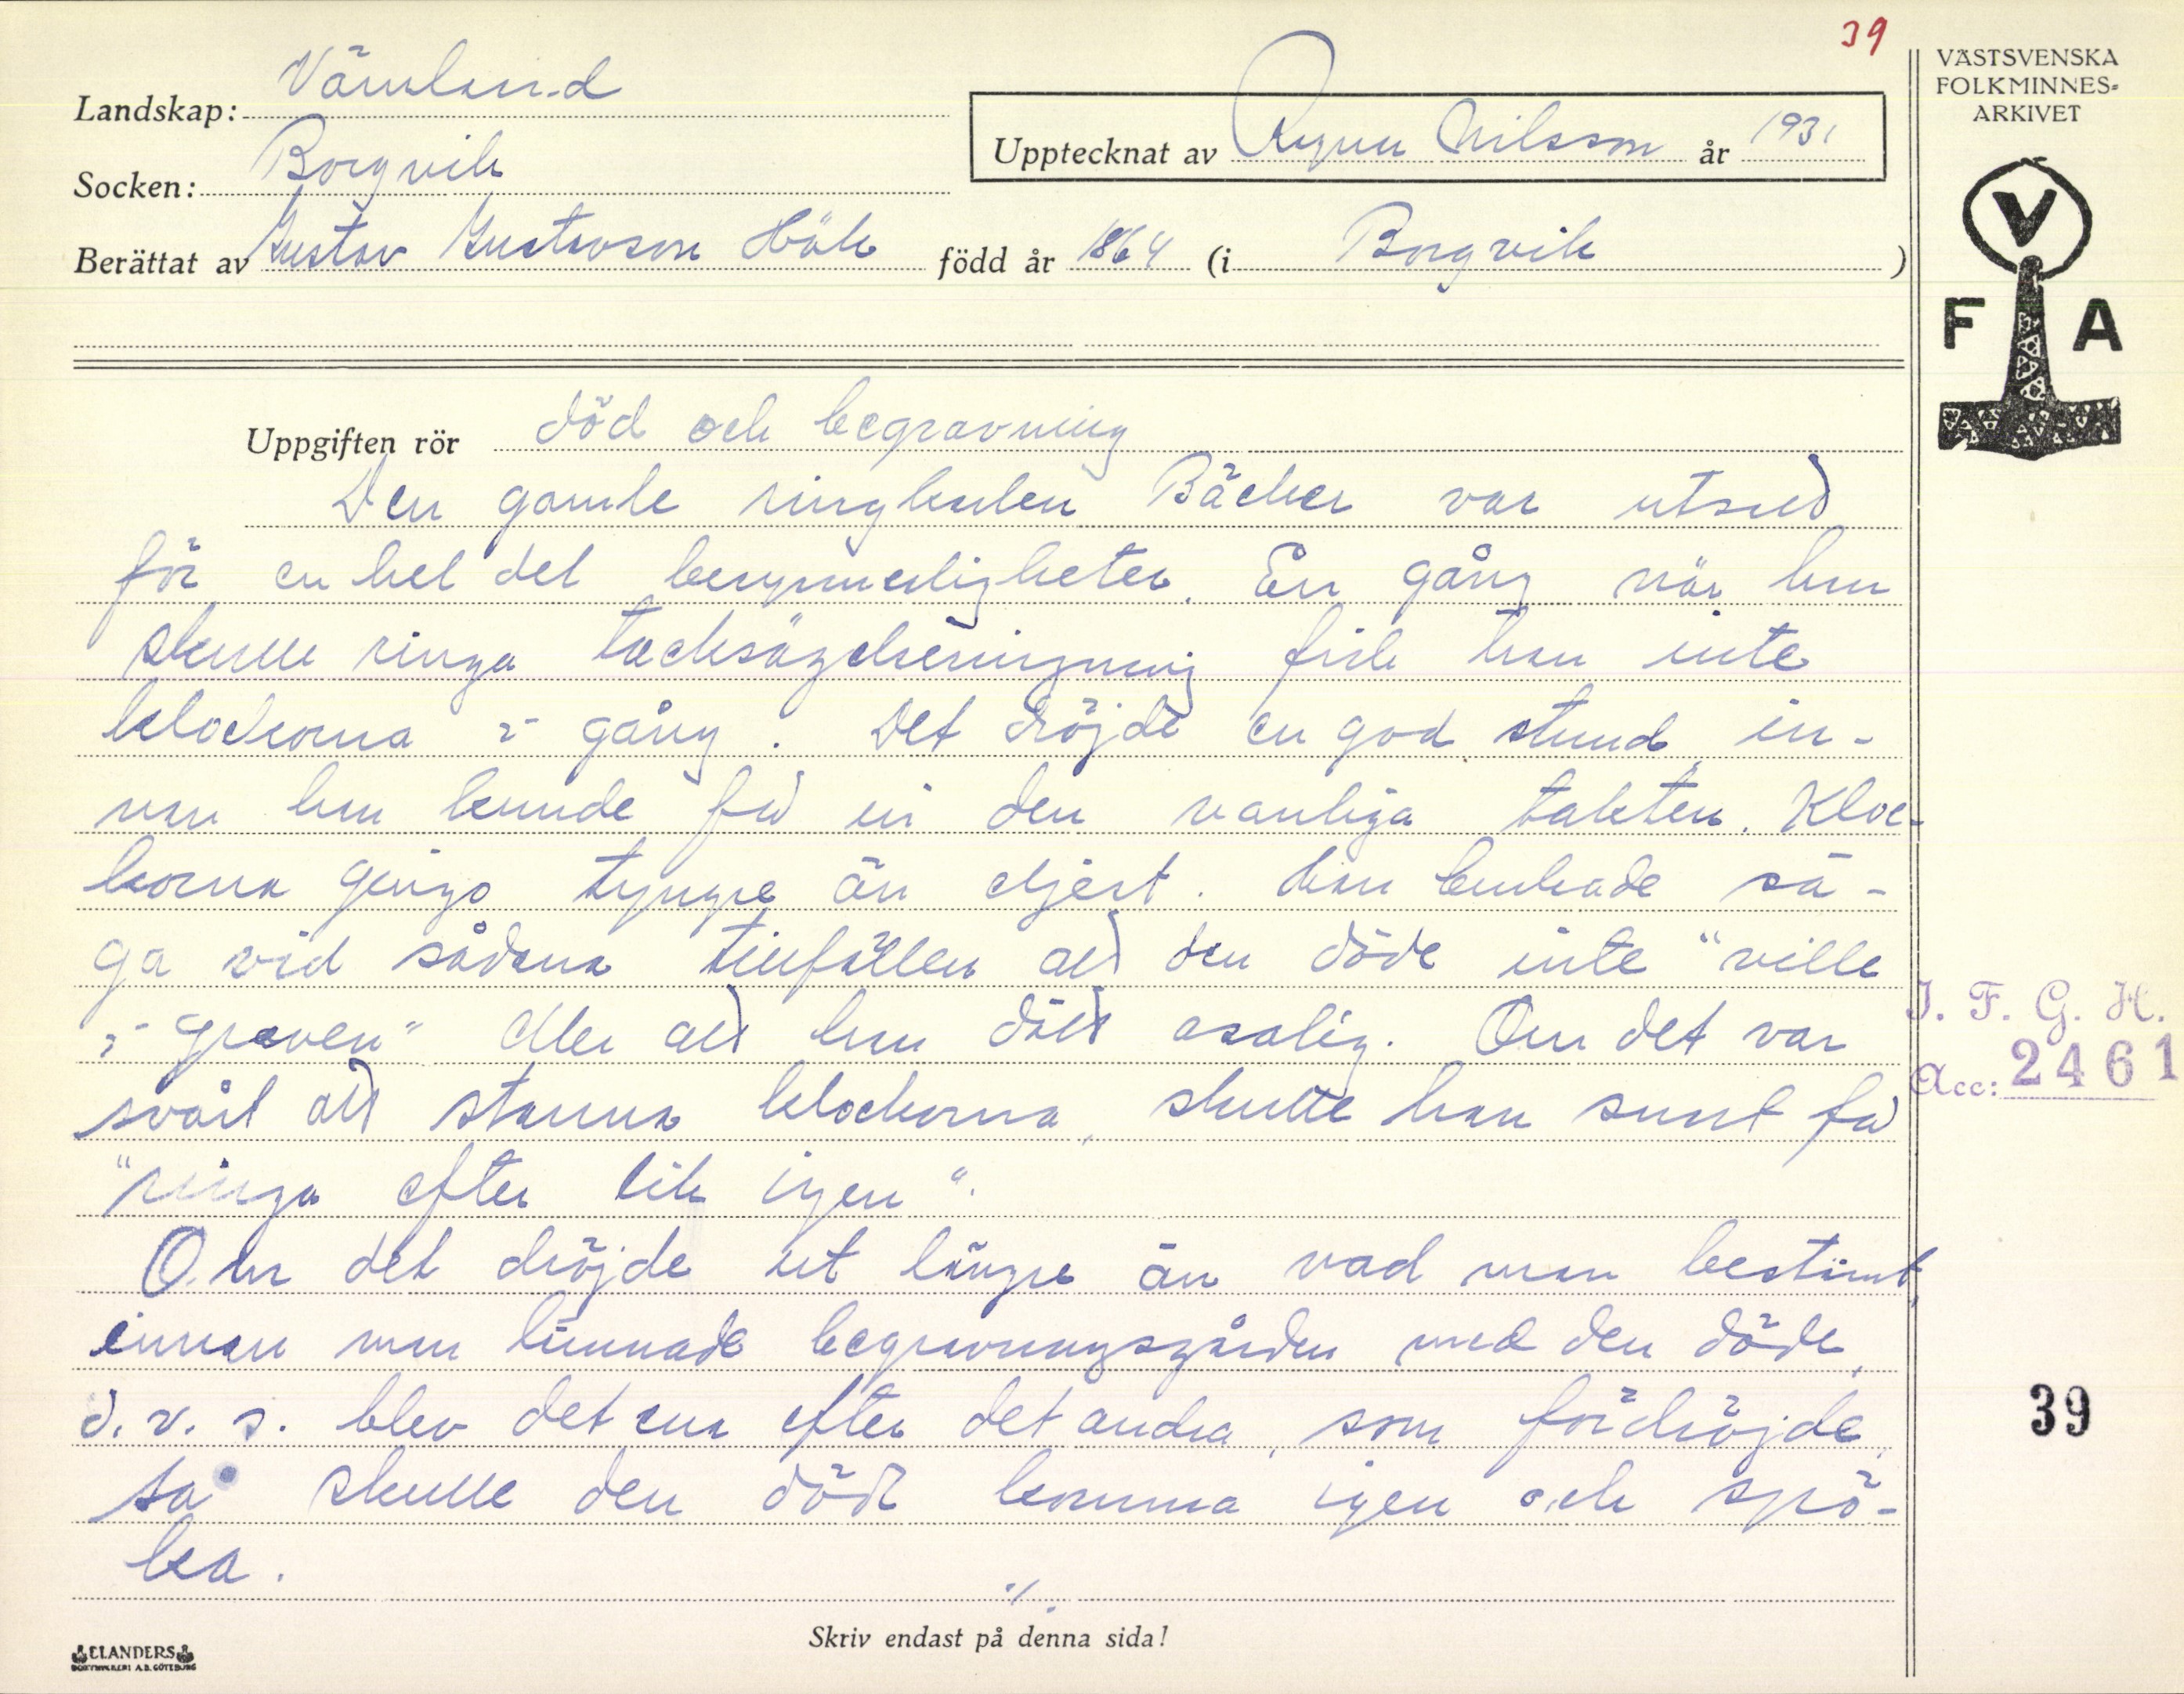 39
VÄSTSVENSKA
FOLKMINNES-
ARKIVET
Landskap: Värmland
Upptecknat av Ragnar Nilsson år 1931
Socken: Borgvik
Berättat av Gustav Gustavsson Hök född år 1864 (i Borgvik)
V
F A
Uppgiften rör död och begravning
Den gamle ringkarlen Bäcker var utsatt
för en hel del besynnerligheter. En gång när han
skulle ringa tacksägelseringning fick han inte
klockorna i gång. Det dröjde en god stund in-
nan han kunde få in den vanliga takten. Kloc-
korna gingo tyngre än eljest. Han brukade sä-
ga vid sådana tillfällen att den döde inte "ville
i graven" eller att han dött osalig. Om det var
svårt att stanna klockorna, skulle han snart få
"ringa efter lik igen".
Om det dröjde ut längre än vad man bestämt,
innan man lämnade begravningsgården med den döde,
d.v.s. blev det ena efter det andra, som fördröjde,
så skulle den döde komma igen och spö-
ka.
./.
I. F. G. H.
Acc: 2461
39
Skriv endast på denna sida!
ELANDERS
BOKTRYCKERI A.B. GÖTEBORG